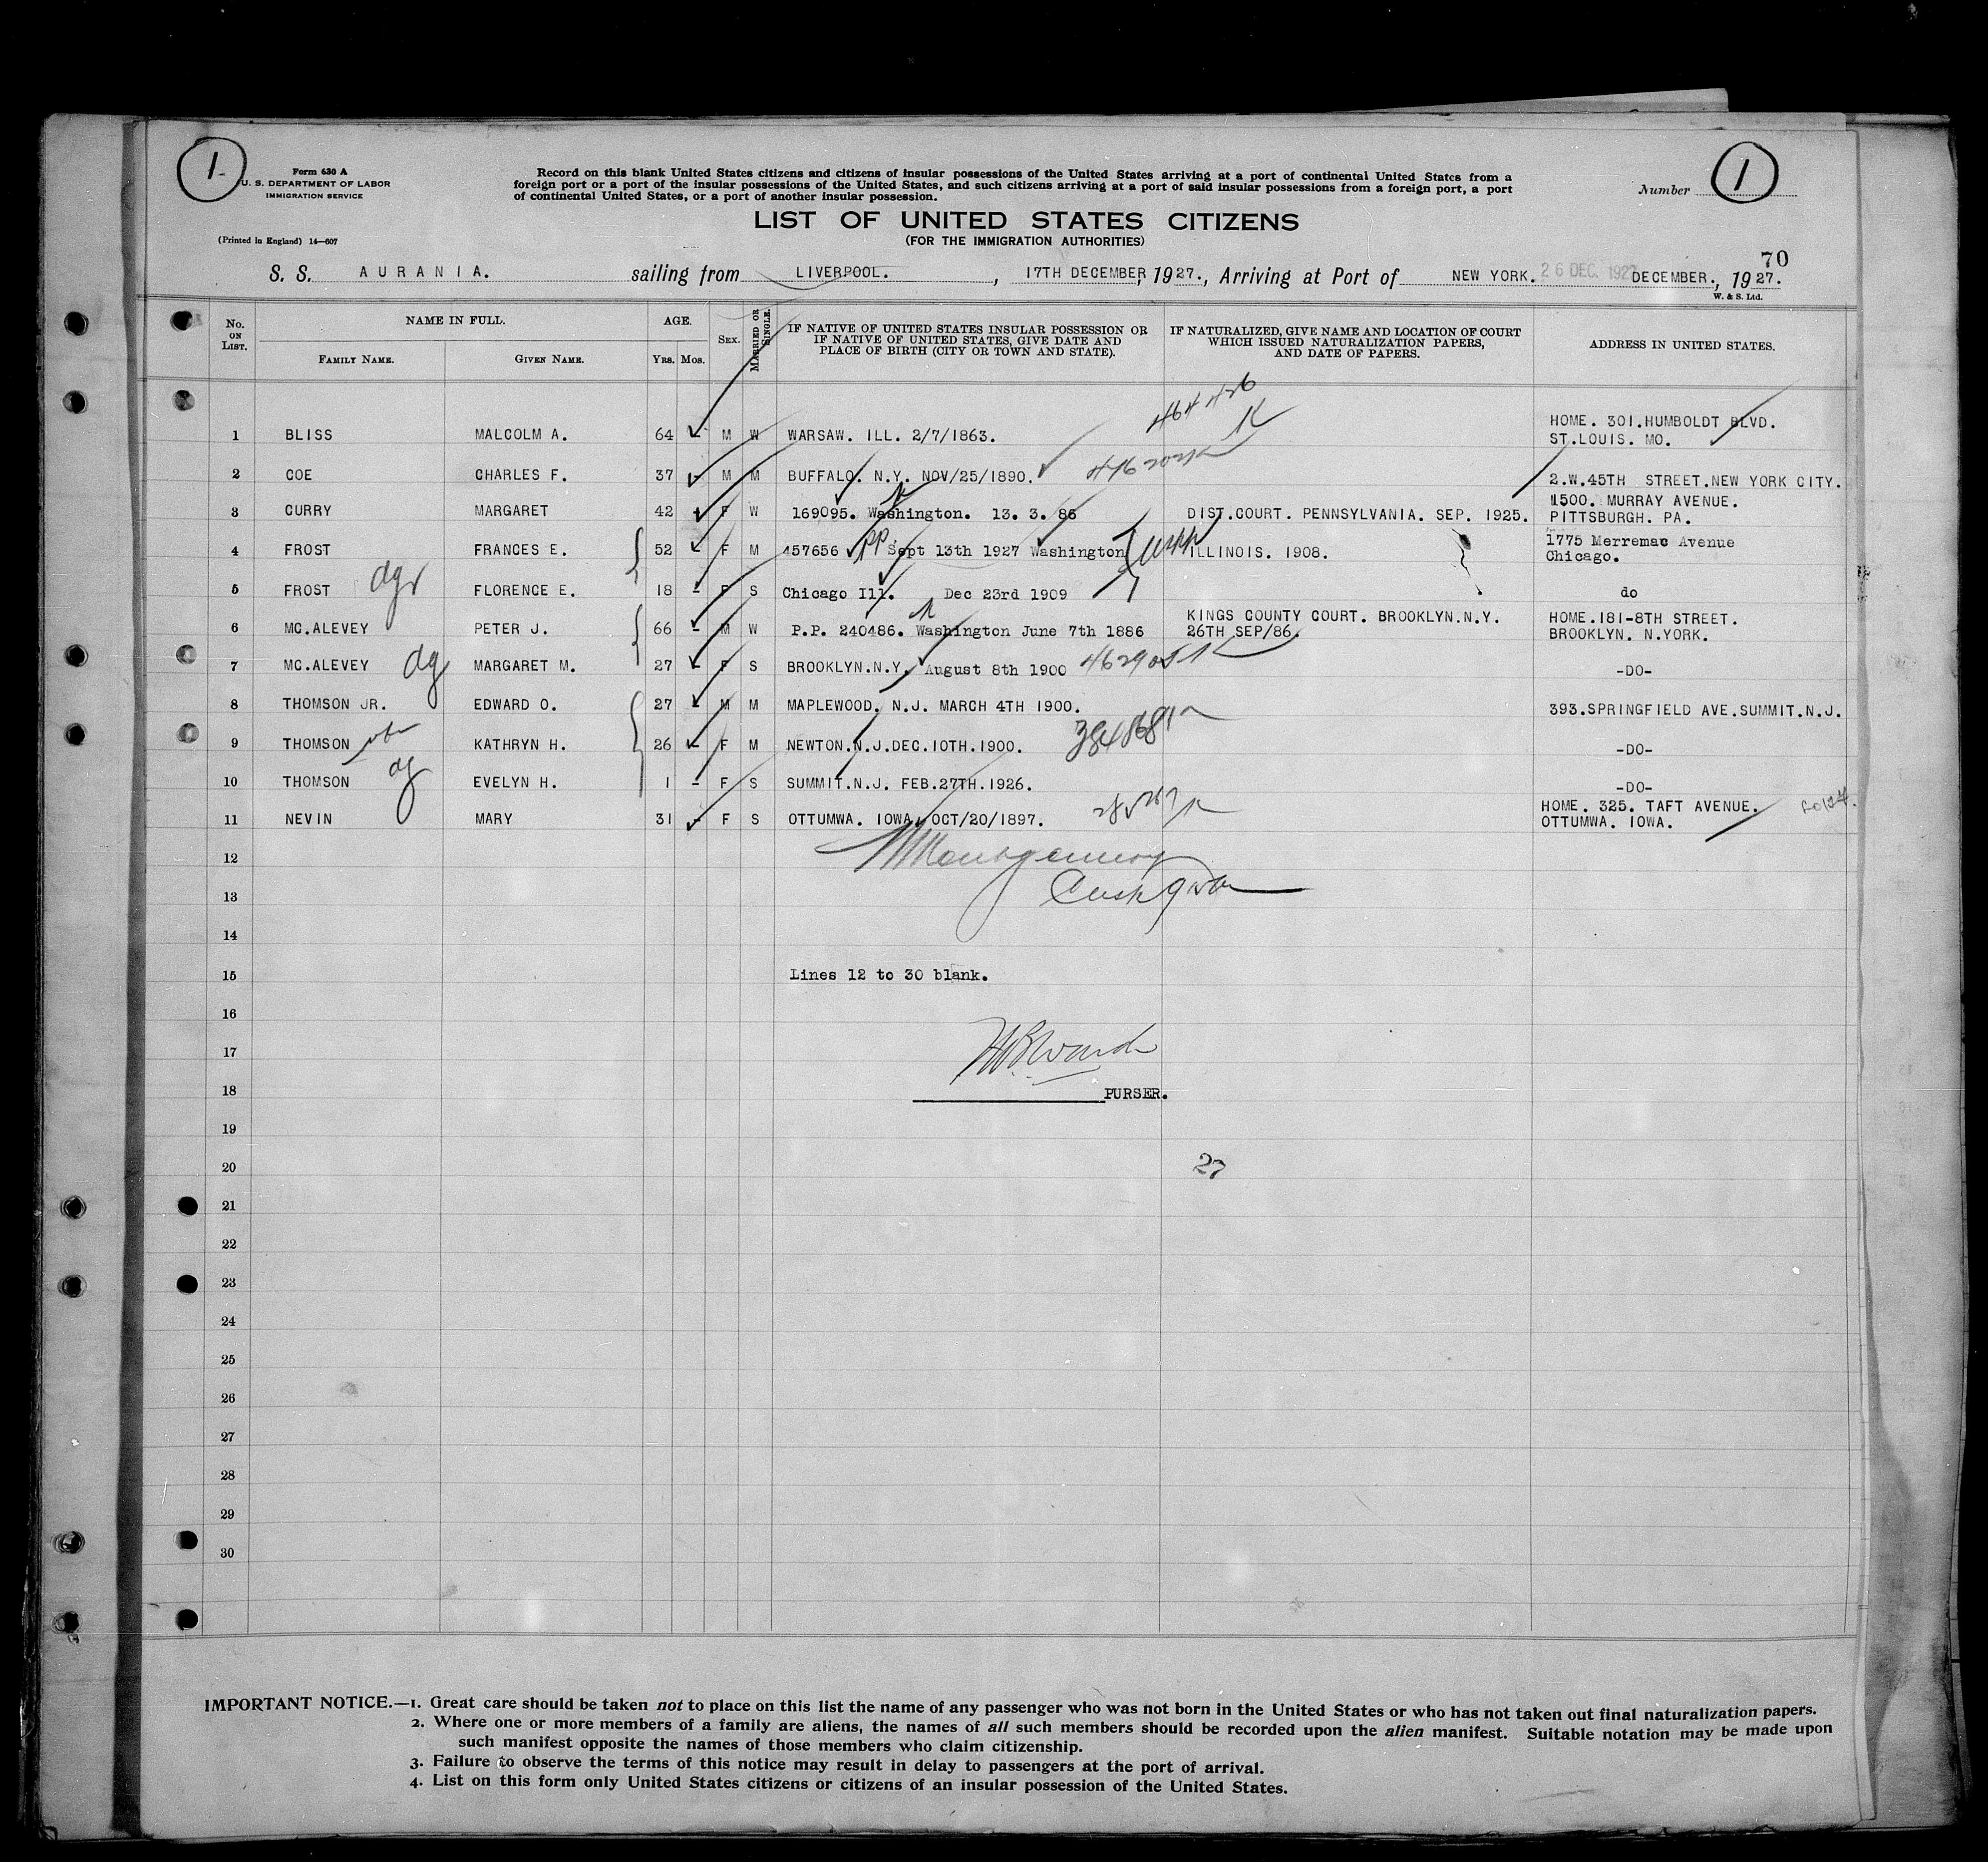 1.
Form 630 A
U. S. DEPARTMENT OF LABOR
IMMIGRATION SERVICE
(Printed in England) 14—607
Record on this blank United States citizens and citizens of insular possessions of the United States arriving at a port of continental United States from a
foreign port or a port of the insular possessions of the United States, and such citizens arriving at a port of said insular possessions from a foreign port, a port
of continental United States, or a port of another insular possession.
Number 1
LIST OF UNITED STATES CITIZENS
(FOR THE IMMIGRATION AUTHORITIES)
70
S. S. AURANIA. sailing from LIVERPOOL., 17TH DECEMBER, 1927., Arriving at Port of NEW YORK. 26 DEC. 1927 DECEMBER., 1927.
W. & S. Ltd.
No. ON LIST. NAME IN FULL. FAMILY NAME. GIVEN NAME. AGE. YRS. MOS. SEX. MARRIED OR SINGLE.
IF NATIVE OF UNITED STATES INSULAR POSSESSION OR
IF NATIVE OF UNITED STATES, GIVE DATE AND
PLACE OF BIRTH (CITY OR TOWN AND STATE).
IF NATURALIZED, GIVE NAME AND LOCATION OF COURT
WHICH ISSUED NATURALIZATION PAPERS,
AND DATE OF PAPERS.
ADDRESS IN UNITED STATES.
464426
1 BLISS MALCOLM A. 64 - M W WARSAW. ILL. 2/7/1863. HOME. 301.HUMBOLDT BLVD.
ST.LOUIS. MO.
2 COE CHARLES F. 37 - M M BUFFALO. N.Y. NOV/25/1890. 2.W.45TH STREET.NEW YORK CITY.
3 CURRY MARGARET 42 - F W 169095. Washington. 13. 3. 86 DIST.COURT. PENNSYLVANIA. SEP. 1925. 1500. MURRAY AVENUE.
PITTSBURGH. PA.
4 FROST FRANCES E. 52 - F M 457656 PP. Sept 13th 1927 Washington ILLINOIS. 1908. 1775 Merremac Avenue
Chicago.
5 FROST FLORENCE E. 18 - F S Chicago Ill. Dec 23rd 1909 do
6 MC.ALEVEY PETER J. 66 - M W P.P. 240486. Washington June 7th 1886 KINGS COUNTY COURT. BROOKLYN.N.Y.
26TH SEP/86. HOME.181-8TH STREET.
BROOKLYN. N.YORK.
7 MC.ALEVEY MARGARET M. 27 - F S BROOKLYN.N.Y. August 8th 1900 -DO-
8 THOMSON JR. EDWARD O. 27 - M M MAPLEWOOD. N.J. MARCH 4TH 1900. 393.SPRINGFIELD AVE.SUMMIT.N.J.
9 THOMSON KATHRYN H. 26 - F M NEWTON.N.J.DEC.10TH.1900. -DO-
10 THOMSON EVELYN H. 1 - F S SUMMIT.N.J. FEB.27TH.1926. -DO-
11 NEVIN MARY 31 - F S OTTUMWA. IOWA. OCT/20/1897. HOME. 325. TAFT AVENUE.
OTTUMWA. IOWA.
12 Montgomery
13
14
15 Lines 12 to 30 blank.
16
17
18 PURSER.
19
20
27
21
22
23
24
25
26
27
28
29
30
IMPORTANT NOTICE.—1. Great care should be taken not to place on this list the name of any passenger who was not born in the United States or who has not taken out final naturalization papers.
2. Where one or more members of a family are aliens, the names of all such members should be recorded upon the alien manifest. Suitable notation may be made upon
such manifest opposite the names of those members who claim citizenship.
3. Failure to observe the terms of this notice may result in delay to passengers at the port of arrival.
4. List on this form only United States citizens or citizens of an insular possession of the United States.